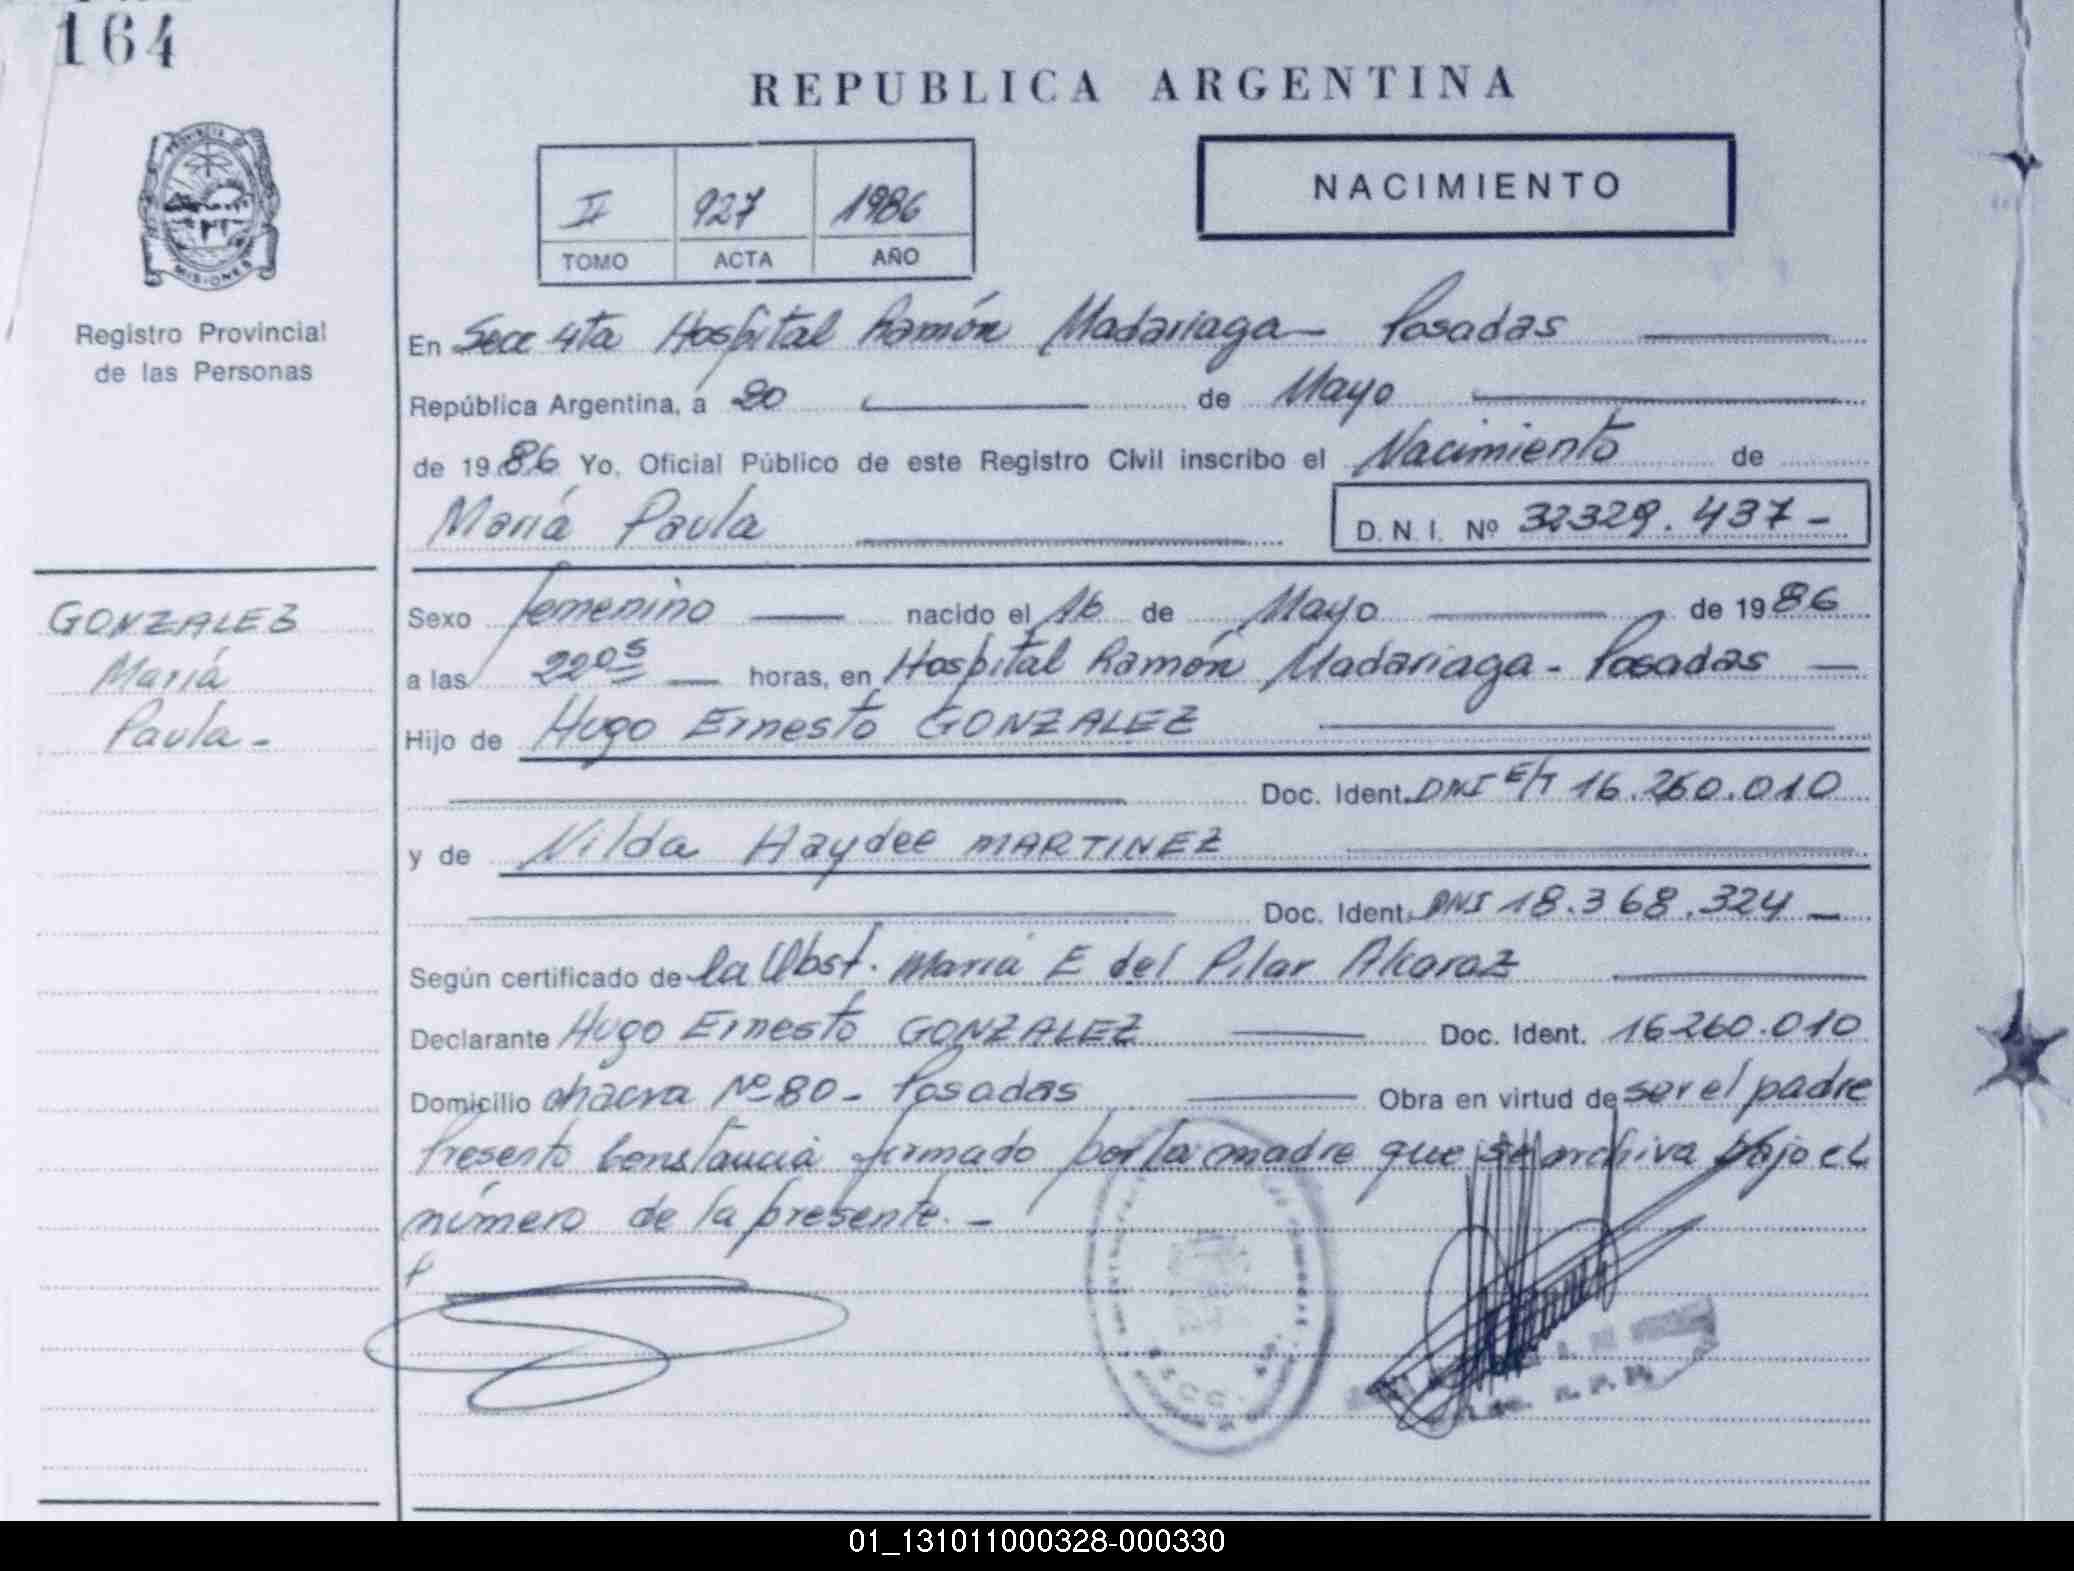 164
REPUBLICA ARGENTINA
PROVINCIA DE
MISIONES
Registro Provincial
de las Personas
II 927 1986
TOMO ACTA AÑO
NACIMIENTO
En Secc 4ta Hospital Ramón Madariaga - Posadas
República Argentina, a 20 de Mayo
de 1986 Yo, Oficial Público de este Registro Civil inscribo el Nacimiento de
María Paula D. N. I. Nº 32329.437-
GONZALEZ
María
Paula-
Sexo femenino nacido el 16 de Mayo de 1986
a las 2205 horas, en Hospital Ramón Madariaga - Posadas
Hijo de Hugo Ernesto GONZALEZ
Doc. Ident. DNI E/T 16.260.010
y de Nilda Haydee MARTINEZ
Doc. Ident. DNI 18.368.324
Según certificado de la Obst. María E del Pilar Alcaraz
Declarante Hugo Ernesto GONZALEZ Doc. Ident. 16260.010
Domicilio chacra Nº 80 - Posadas Obra en virtud de ser el padre
Presento constancia firmado por la madre que se archiva bajo el
número de la presente.-
01_131011000328-000330